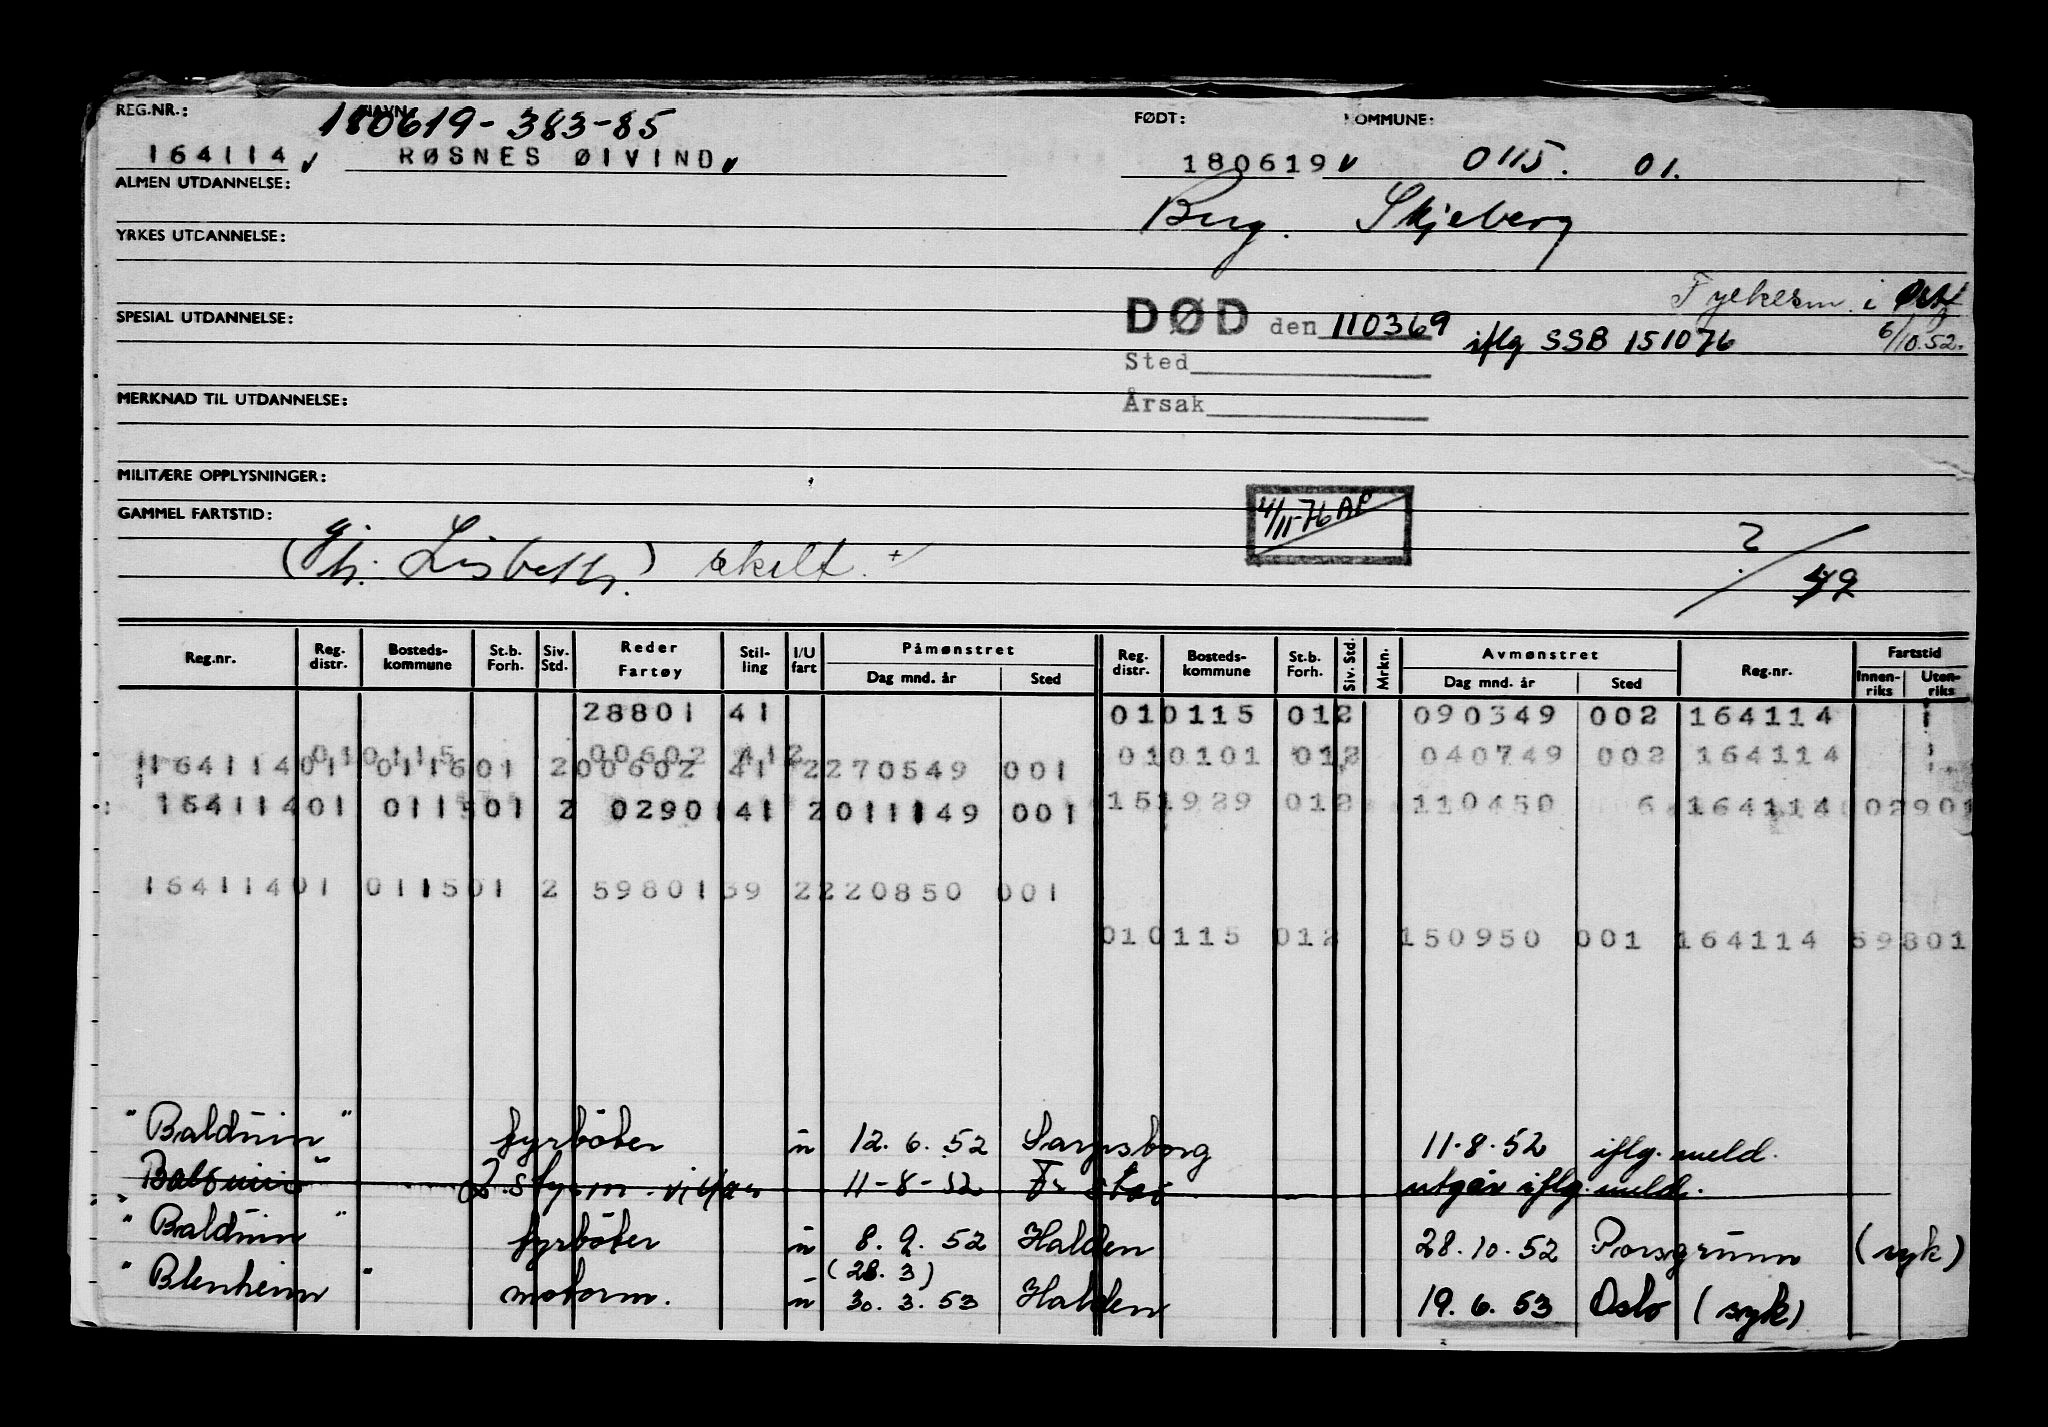 REG.NR.: NAVN: 180619-383-85 FØDT: KOMMUNE:
164114 v RØSNES ØIVIND v 180619 v 0115. 01.
ALMEN UTDANNELSE:
Berg. Skjeberg
YRKES UTDANNELSE:
Fylkesm. i Østf
SPESIAL UTDANNELSE: DØD den 110369 iflg SSB 151076 6/10.52.
Sted
MERKNAD TIL UTDANNELSE: Årsak
MILITÆRE OPPLYSNINGER:
4/11-76 AP
GAMMEL FARTSTID:
(gj. h. Lisbeth.) skilt. + ?/49
Reg.nr. Reg. distr. Bosteds-kommune St.b. Forh. Siv. Std. Reder Fartøy Stil-ling I/U fart Påmønstret Dag mnd. år Sted Reg. distr. Bosteds-kommune St.b. Forh. Siv. Std. Mrkn. Avmønstret Dag mnd. år Sted Reg.nr. Fartstid Innen-riks Uten-riks
28801 41 010115 012 090349 002 164114
164114 01 0116 01 2 00602 41 2 270549 001 010101 012 040749 002 164114
164114 01 0115 01 2 02901 41 2 011149 001 151929 012 110450 6 164114 02901
164114 01 0115 01 2 59801 39 2 220850 001
010115 012 150950 001 164114 59801
"Balduin" fyrbøter u 12.6.52 Sarpsborg 11.8.52 iflg. meld.
"Balduin" 2. styrm. 11-8-52 Fr.stad utgår iflg. meld.
"Balduin" fyrbøter u 8.9.52 Halden 28.10.52 Porsgrunn (syk)
(28.3)
"Blenheim" motorm. u 30.3.53 Halden 19.6.53 Oslo (syk)